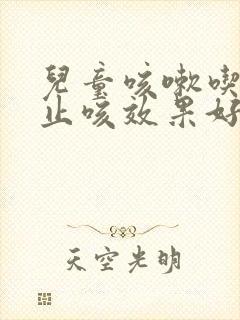 兒童咳嗽喫
止咳效果好
天空光明